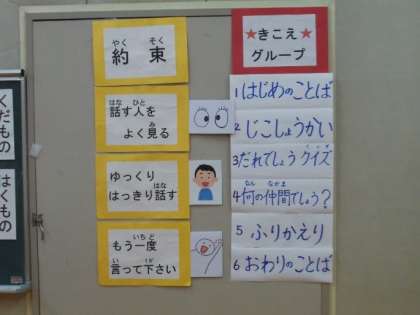 約束
やく そく
話す人を
はな ひと
よく見る
み
ゆっくり
はっきり話す
はな
もう一度
いちど
言って下さい
い くだ
★きこえ★
グループ
1はじめのことば
2じこしょうかい
3だれでしょうクイズ
4何の仲間でしょう?
なん なかま
5ふりかえり
6おわりのことば
くだもの
はくもの